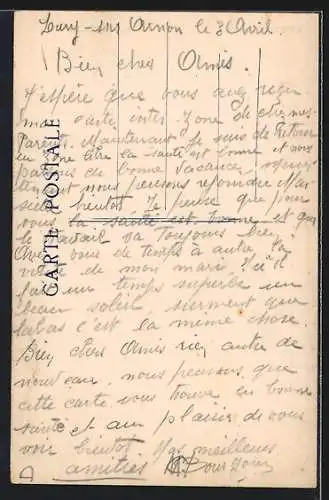 Lury-sur Arnon le 3 Avril.
Bien chers Amis.
J'espère que vous avez reçu
ma carte inter-zone de chez mes
Parents. Maintenant je suis de retour
en zone libre la santé est bonne et nous
passons de bonne vacances,
nous pensons rejoindre Mar
seille bientôt. Je pense que pour
vous la santé est bonne et que
le travail va toujours bien.
Avez vous de temps à autre la
visite de mon mari. Ici il
fait un temps superbe un
beau soleil, surement que
labas c'est la même chose.
Bien chers Amis rien autre de
nouveau, nous pensons que
cette carte vous trouve en bonne
santé et au plaisir de vous
voir bientôt Nos meilleurs
amitiés
CARTE POSTALE